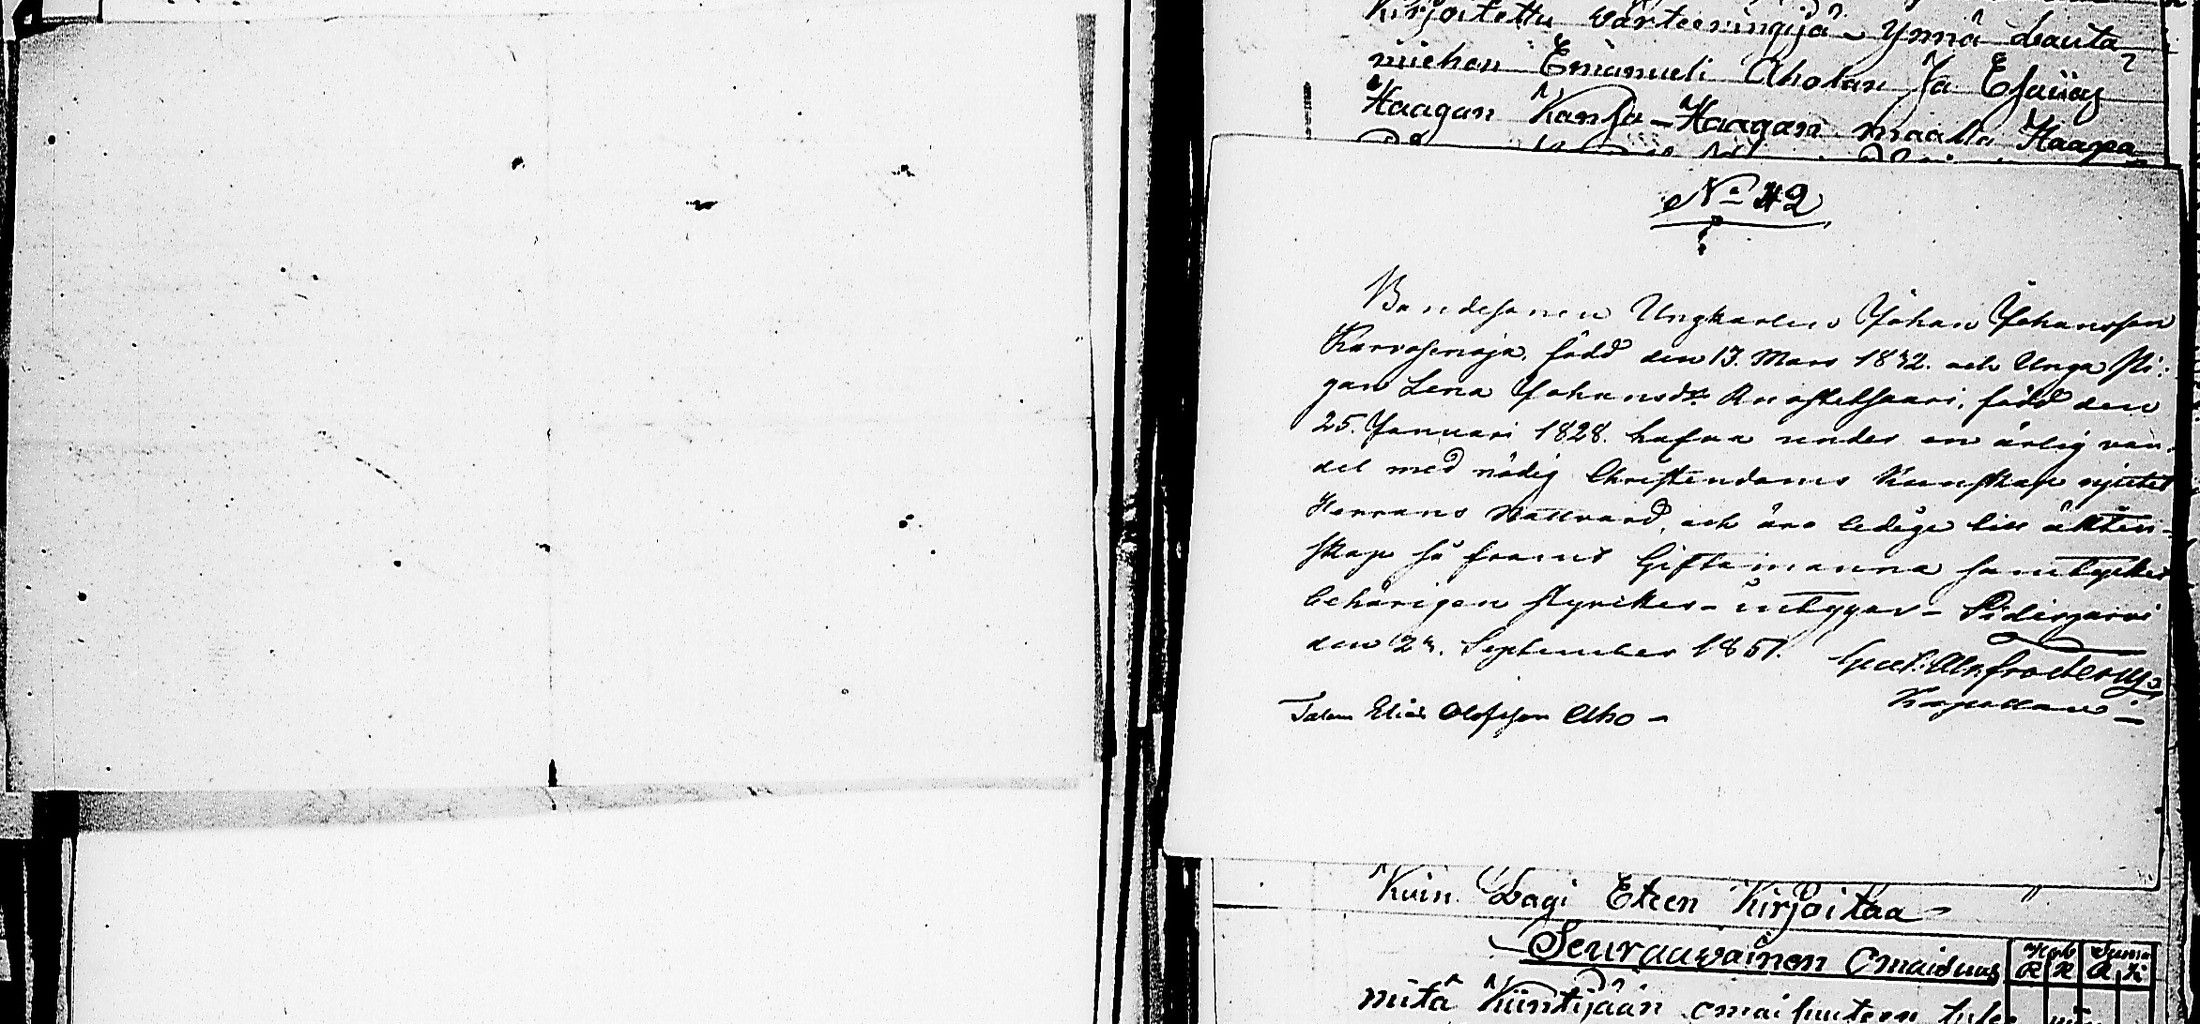 Kirjoitettu wärteeringijä ynnä Lauta
miehen Emanueli Aholan Ja Esaiias
Haagan Kansa - Haagan maalla Haapa
No 42
Bondesonen Ungkarlen Johan Johansson
född den 13. Mars 1832. och Unga Pi:
gan Lena Johansdr. född den
25. Januari 1828. hafva under en ärlig van-
del med nödig Christendoms Kunskap njutit
Herrans Nattvard, och äro ledige till äkten-
skap så framt Giftomanna samtycket
behörigen styrckes - Pidisjärvi
den 2 September 1851.
Kapellan
Talem Elias Olofsson Aho -
Kuin Lagi Eteen Kirjoitaa
Seuraawainen Omaisuus
R K R K
mitä Kiintijään